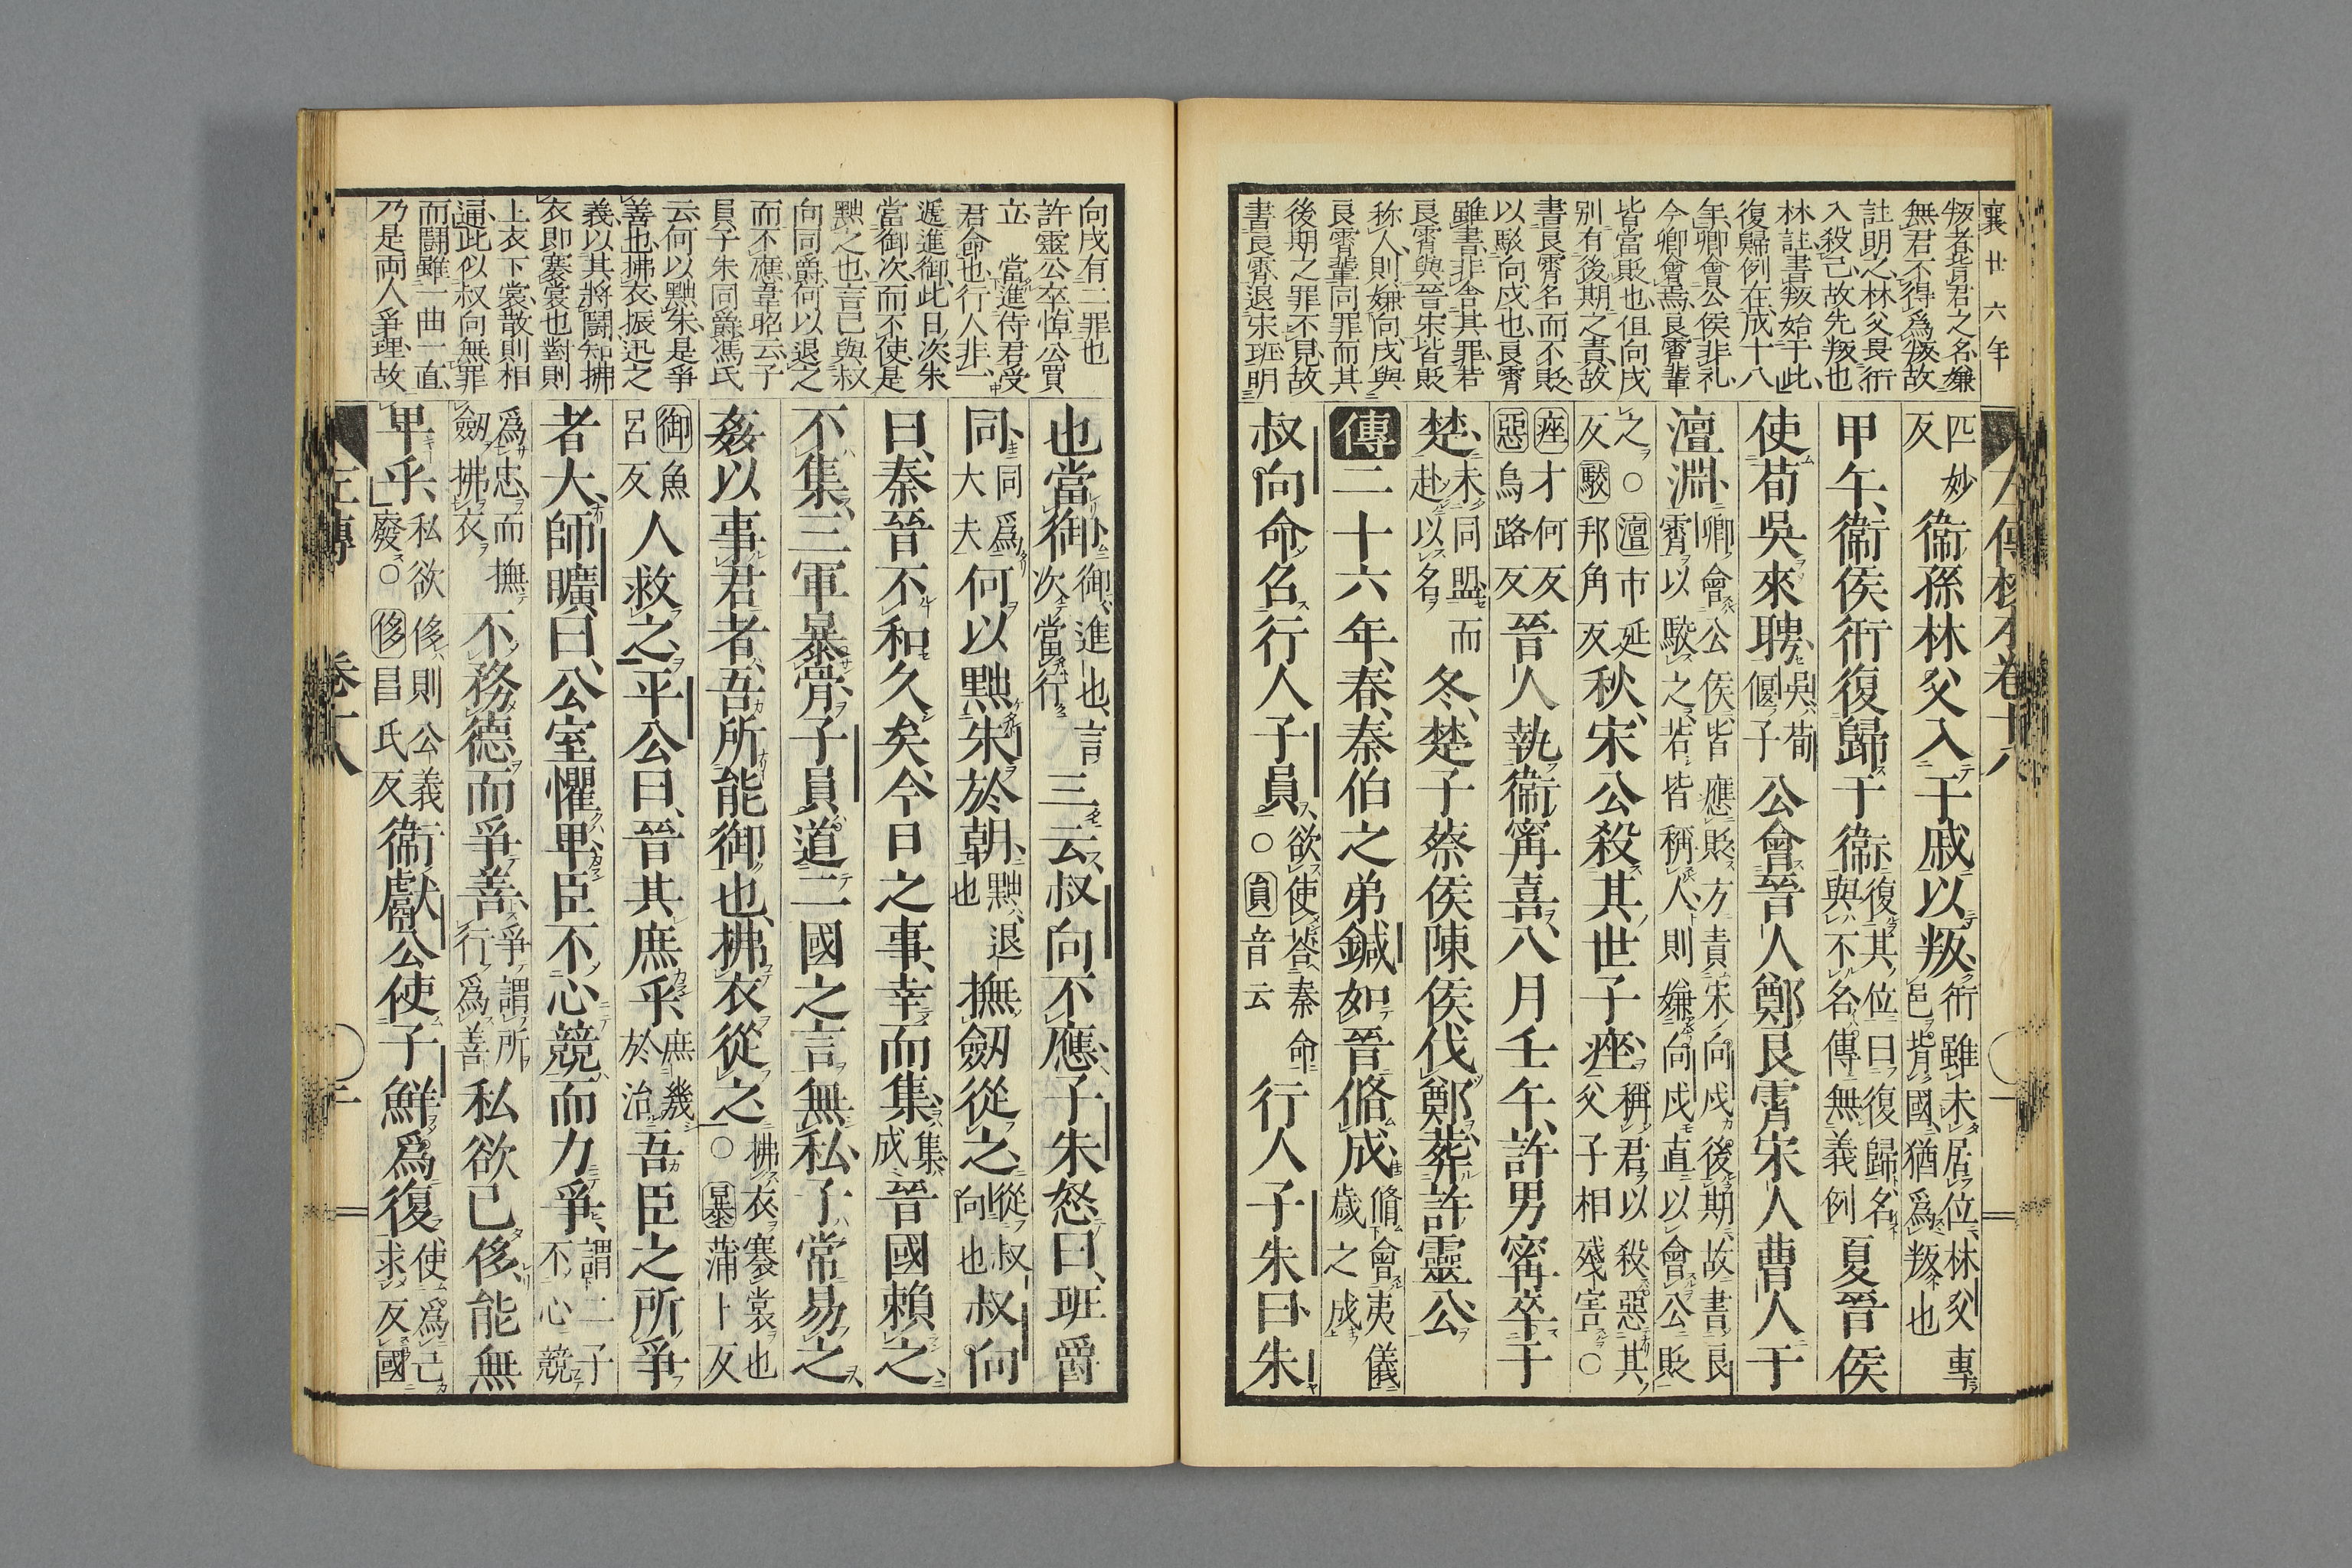 襄廿六年
叛者背君之名嫌
無君不得爲叛故
註明之林父畏衎
入殺己故先叛也
林註書叛始于此
復歸例在成十八
年卿會公侯非礼
今卿會焉良霄輩
皆當貶也但向戌
別有後期之責故
書良霄名而不貶
以駮向戌也良霄
雖書非舍其罪若
良霄與晉宋皆貶
称人則嫌向戌與
良霄輩同罪而其
後期之罪不見故
書良霄退宋班明
匹妙反衞孫林父入于戚以叛衎雖未居位林父專邑背國猶爲叛也
甲午衞侯衎復歸于衞復其位曰復歸名與不名傳無義例夏晉侯
使荀吳來聘吳荀偃子公會晉人鄭良霄宋人曹人于
澶淵卿會公侯皆應貶方責宋向戌後期故書良霄以駮之若皆稱人則嫌向戌直以會公貶
之○澶市延反駮邦角反秋宋公殺其世子痤稱君以殺惡其父子相殘害○
痤才何反惡烏路反晉人執衞甯喜八月壬午許男甯卒于
楚未同盟而赴以名冬楚子蔡侯陳侯伐鄭葬許靈公
傳二十六年春秦伯之弟鍼如晉脩成脩會夷儀歲之成
叔向命召行人子員欲使荅秦命○員音云行人子朱曰朱
向戌有二罪也
許靈公卒悼公買
立 當進待君受
君命也行人非一
遞進御此日次朱
當御次而不使是
黜之也言已與叔
向同爵何以退之
而不應韋昭云子
員子朱同爵馮氏
云何以黜朱是爭
善也拂衣振迅之
義以其將鬪知拂
衣即褰裳也對則
上衣下裳散則相
通此似叔向無罪
而鬪雖一曲一直
乃是両人爭理故
也當御御進也言次當行三云叔向不應子朱怒曰班爵
同同爲大夫何以黜朱於朝黜退也撫劒從之從叔向也叔向
曰秦晉不和久矣今日之事幸而集集成晉國賴之
不集三軍暴骨子員道二國之言無私子常易之
姦以事君者吾所能御也拂衣從之拂衣褰裳也○暴蒲卜反
御魚呂反人救之平公曰晉其庶乎庶幾於治吾臣之所爭
者大師曠曰公室懼卑臣不心競而力爭謂二子不心競
爲忠而撫劒拂衣不務德而爭善爭謂所行爲善私欲已侈能無
卑乎私欲侈則公義廢○侈昌氏反衞獻公使子鮮爲復使爲己求反國
左傳 卷十八